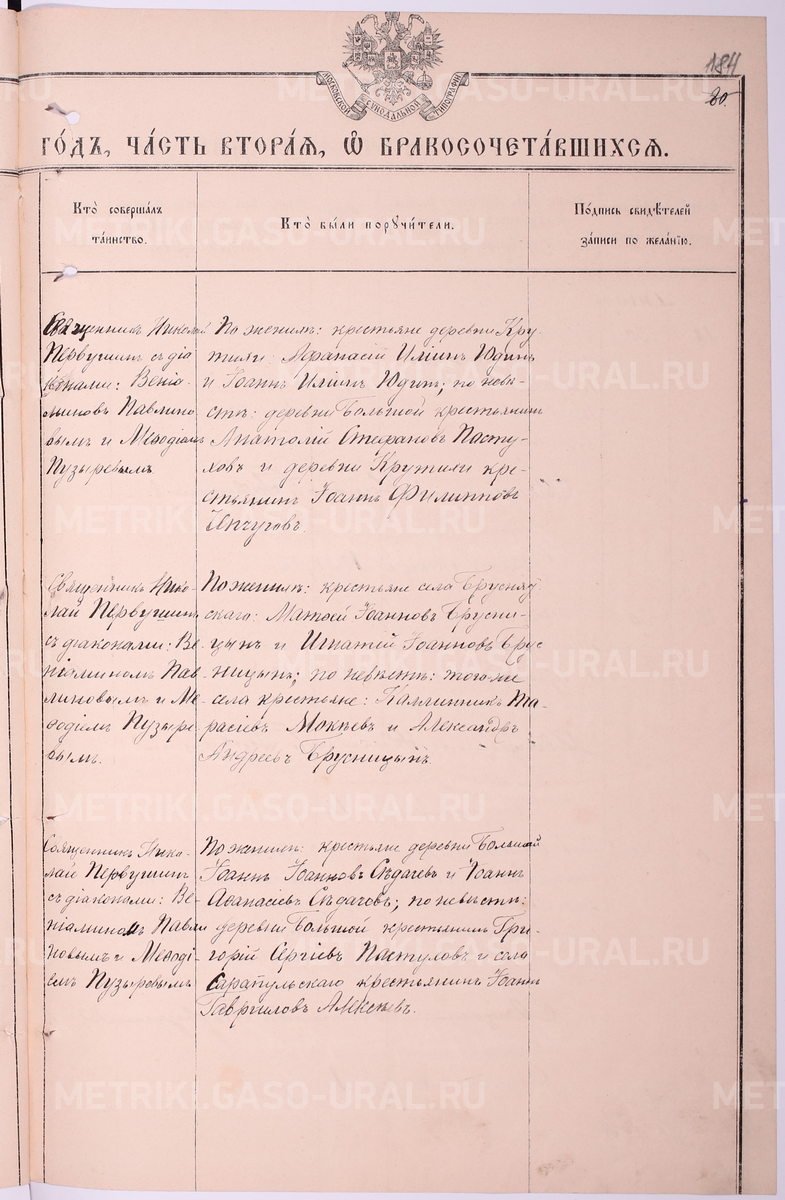 184
20.
МОСКОВСКОЙ СѴНОДАЛЬНОЙ ТИПОГРАФІИ
ГО́ДЪ, ЧА́СТЬ ВТОРА́Я, Ѽ БРАКОСОЧЕТА́ВШИХСЯ.
Кто̀ соверша́лъ
та́инство.
Кто̀ бы́ли порꙋчи́тели.
По́дпись свидѣ́телей
за́писи по жела́нїю.
Священникъ Николай
Первушинъ съ діа
конами: Веніа-
миновъ Павлино
вымъ и Меѳодіемъ
Пузыревымъ
По женихѣ: крестьяне деревни Кру
тихи: Аѳанасій Иліинъ Юдинъ
и Іоаннъ Иліинъ Юдин; по невѣ-
стѣ: деревни Большой крестьянинъ
Анатолій Стефановъ Пасту-
ховъ и деревни Крутихи кре-
стьянинъ Іоаннъ Филипповъ
Священникъ Нико-
лай Первушинъ
съ діаконами: Ве-
ніаминомъ Пав-
линовымъ и Ме-
ѳодіемъ Пузыре-
вымъ.
По женихѣ: крестьяне села Брусянд
скаго: Матѳей Іоанновъ Брусни-
цынъ и Игнатій Іоанновъ Брус
ницынъ; по невѣстѣ: того-же
села крестьяне: Каллиникъ Та-
расіевъ Мокѣевъ и Александръ
Андреевъ Брусницынъ.
Священникъ Нико-
лай Первушинъ
съ діаконами: Ве-
ніаминомъ Павли
новымъ и Меѳоді-
емъ Пузыревымъ
По женихѣ: крестьяне деревни Большой
Іоаннъ Іоанновъ Сѣдачевъ и Іоаннъ
Аѳанасіевъ Сѣдачовъ; по невѣстѣ:
деревни Большой крестьянинъ Гри-
горій Сергіевъ Пастуховъ и села
Сарапульскаго крестьянинъ Іоаннъ
Гавриловъ Алексѣевъ.
METRIKI.GASO-URAL.RU